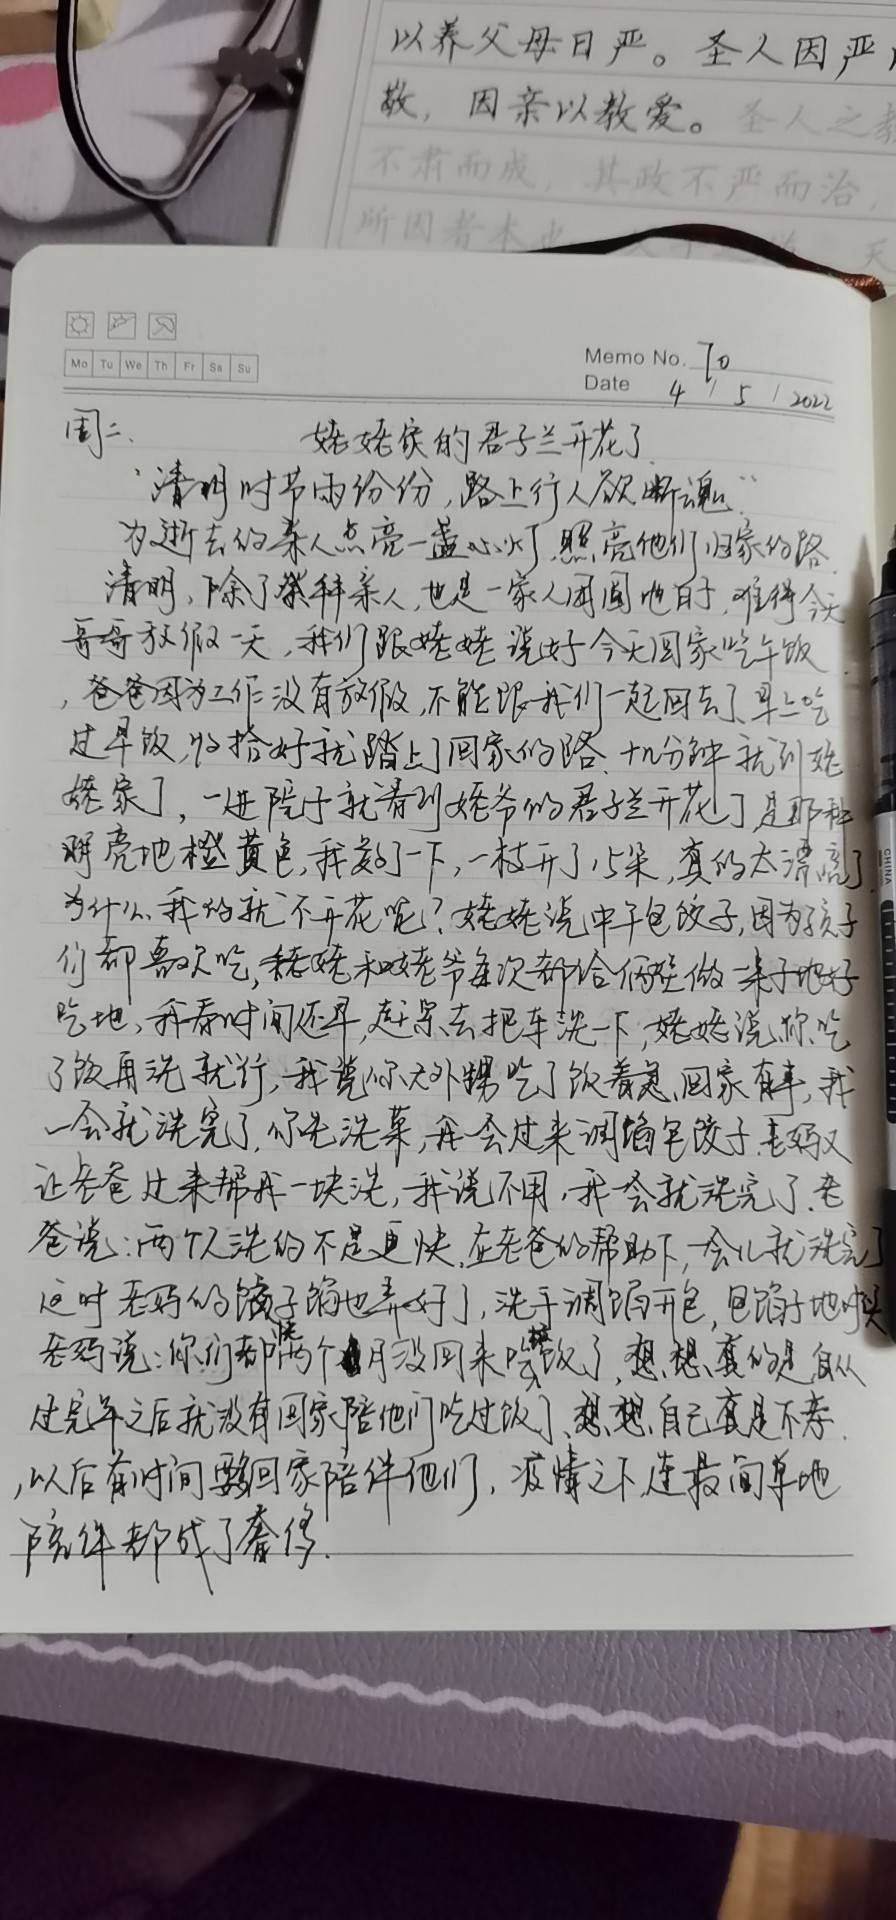 以养父母日严。圣人因严
敬，因亲以教爱。圣人之教
不肃而成，其政不严而治，
所因者本也
Mo Tu We Th Fr Sa Su
Memo No. 70
Date 4 / 5 / 2022
周二、 姥姥家的君子兰开花了.
“清明时节雨份份，路上行人欲断魂”
为逝去的亲人点亮一盏心灯，照亮他们归家的路.
清明，除了祭拜亲人，也是一家人团圆地日子，难得今天
哥哥放假一天，我们跟姥姥说好今天回家吃午饭
，爸爸因为工作没有放假，不能跟我们一起回去了，早上吃
过早饭，收拾好就踏上了回家的路.十几分钟就到姥
姥家了，一进院子就看到姥爷的君子兰开花了，是那种
明亮地橙黄色，我数了一下，一枝开了15朵，真的太漂亮了
为什么我的就不开花呢？姥姥说中午包饺子，因为孩子
们都喜欢吃，姥姥和姥爷每次都给俩娃做一桌子地好
吃地，我看时间还早，赶紧去把车洗一下，姥姥说你吃
了饭再洗就行，我说你大外甥吃了饭着急回家有事，我
一会就洗完了，你先洗菜，我一会过来调馅包饺子.老妈又
让老爸过来帮我一块洗，我说不用，我一会就洗完了.老
爸说：两个人洗的不是更快，在老爸的帮助下，一会儿就洗完了
这时老妈的饺子馅也弄好了，洗手调馅开包，包饺子地时候
老妈说：你们都快两个月没回来吃饭了，想想真的是自从
过完年之后就没有回家陪他们吃过饭了、想想自己真是不孝.
，以后有时间要多回家陪伴他们，疫情之下，连最简单地
陪伴都成了奢侈.
CHINA